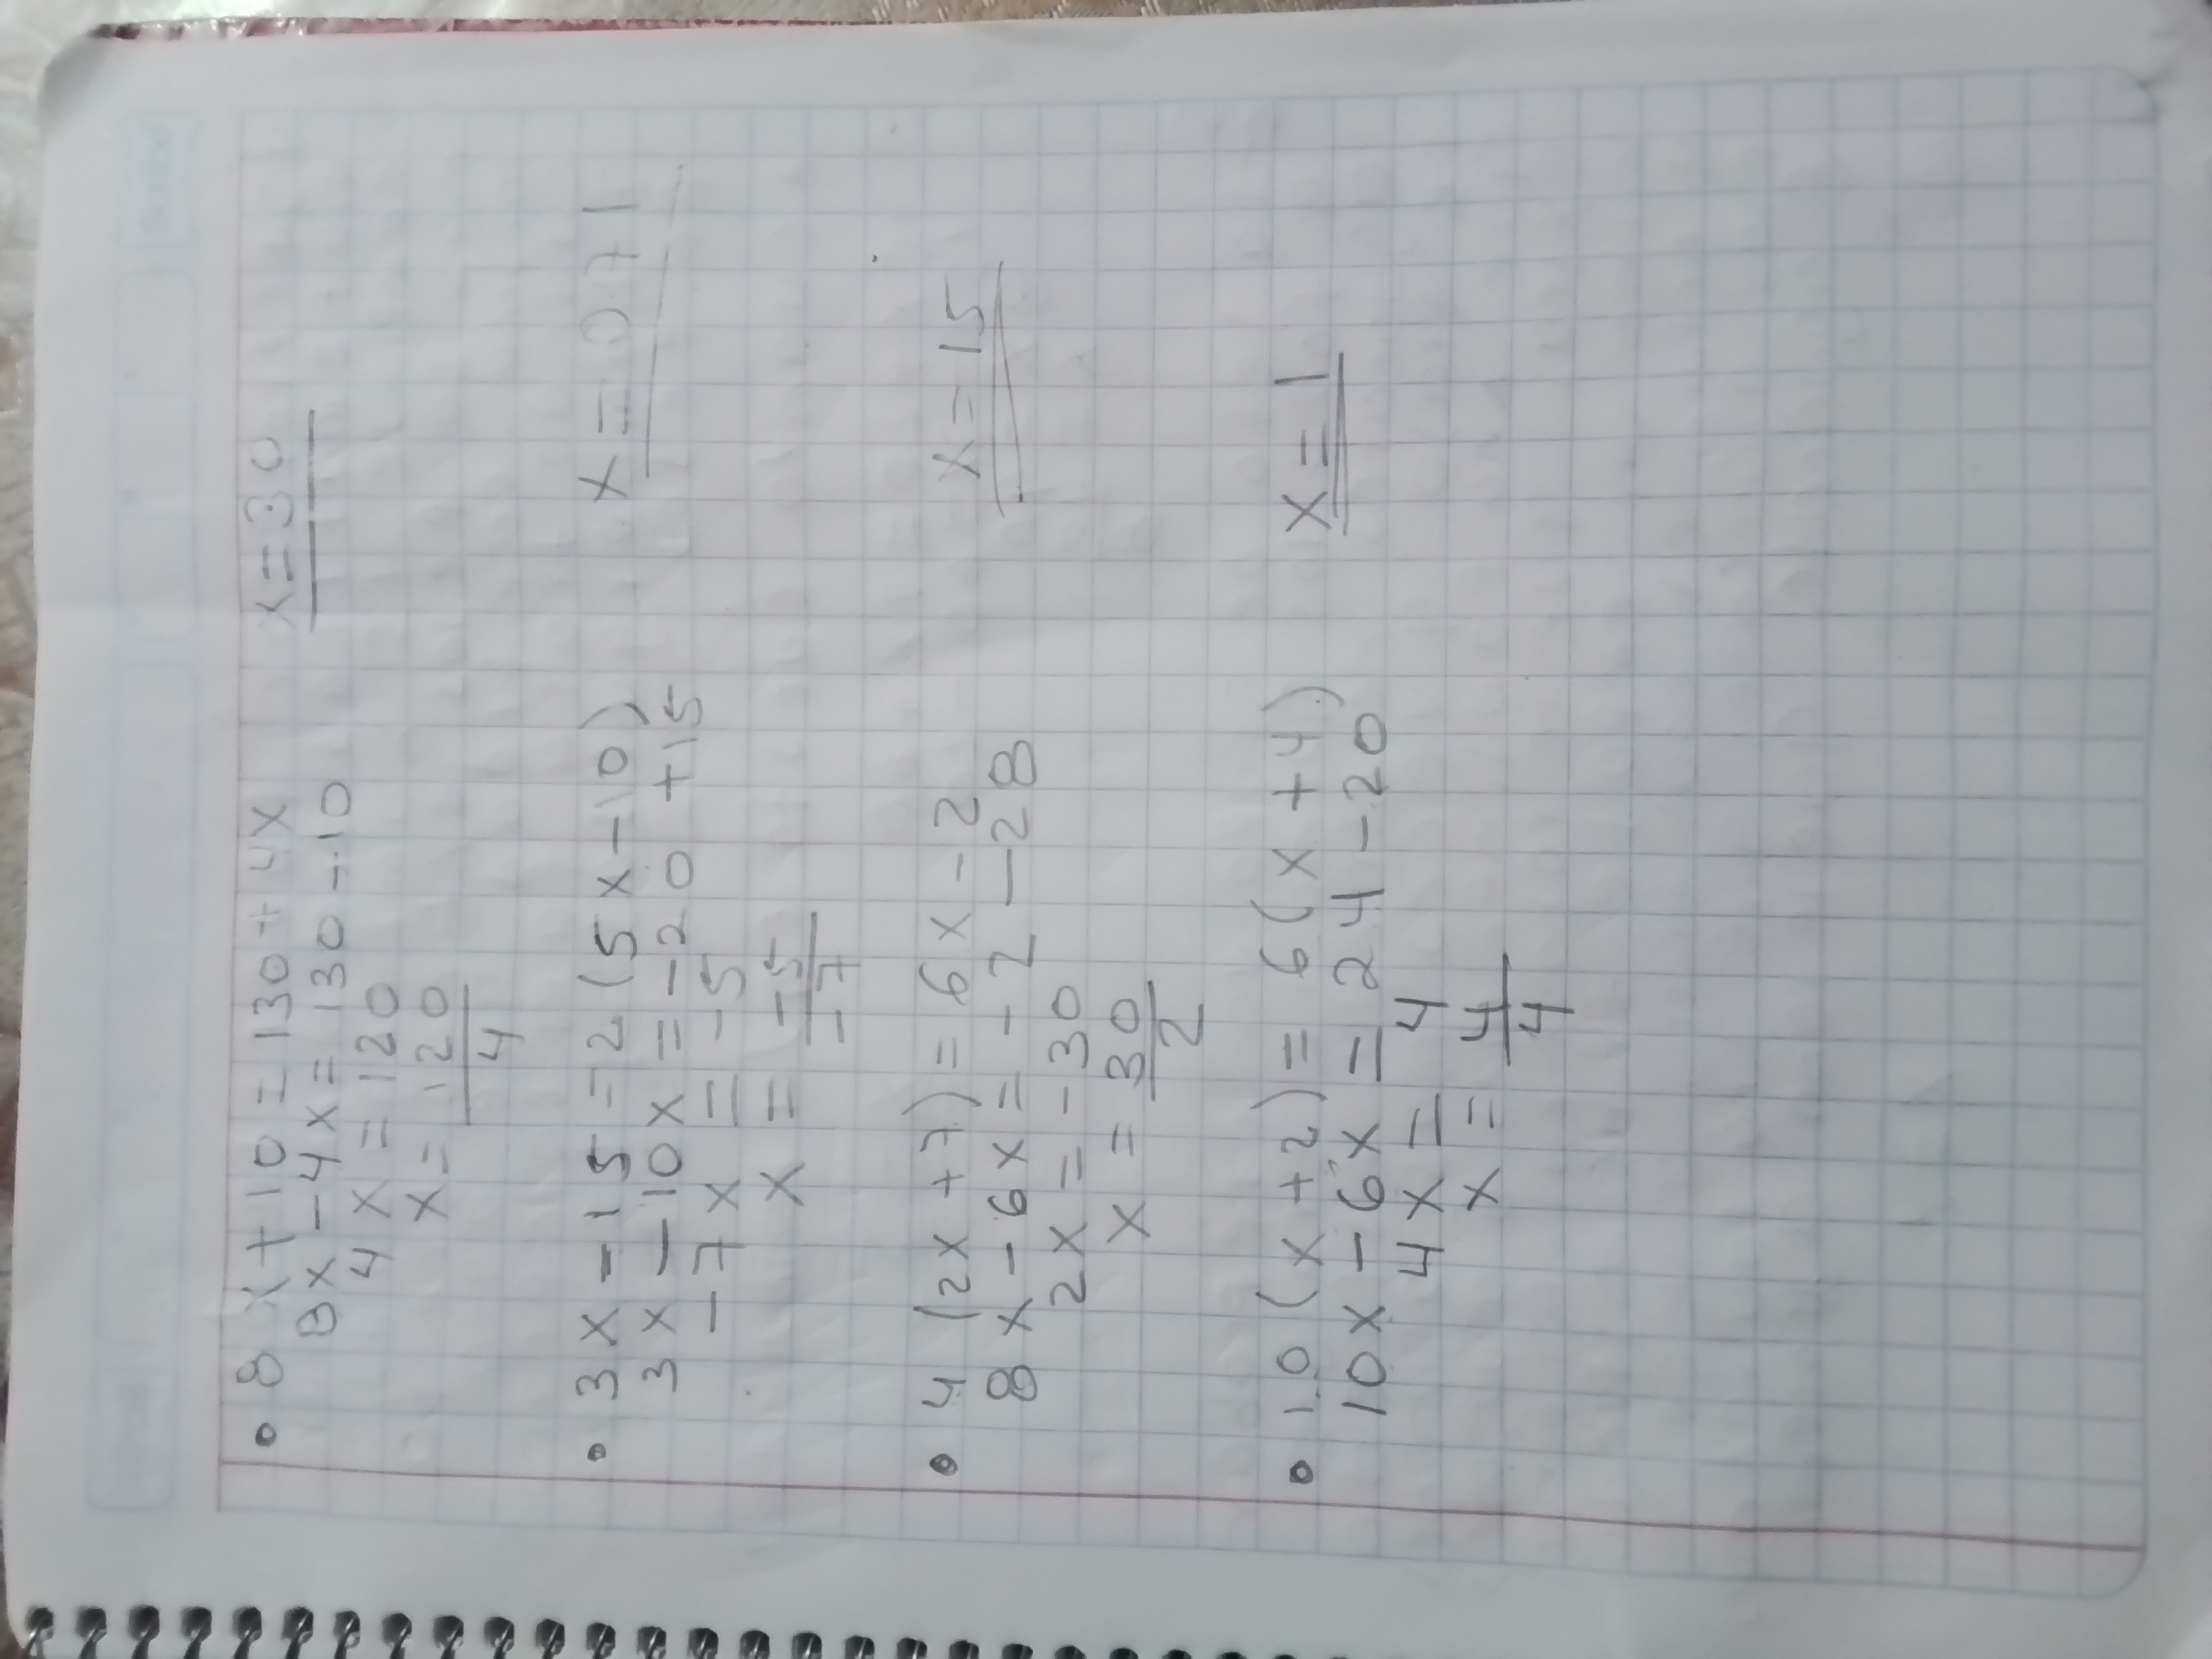 • 8x+10=130+4x x=30
8x-4x=130-10
4x=120
x=120
4
• 3x-15=2(5x-10) x=071
3x-10x=-20+15
-7x=-5
x=-5
-7
• 4(2x+7)=6x-2 x=15
8x-6x=-2-28
2x=-30
x=30
2
• 10(x+2)=6(x+4) x=1
10x-6x=24-20
4x=4
x=4
4